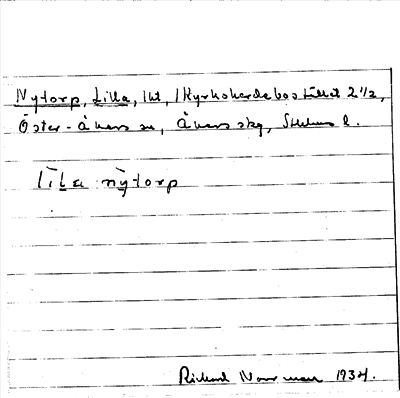 Nytorp, Lilla, lht, /Kyrkoherdebostället 2 1/2,
Öster-Åkers sn, Åkers skg, Sthlms l.
lila nytorp
Rickard Norrman 1934.